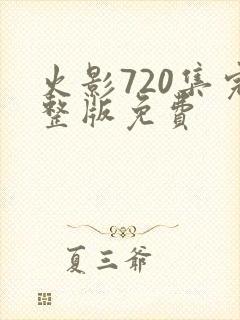 火影720集完
整版免費
夏三爷